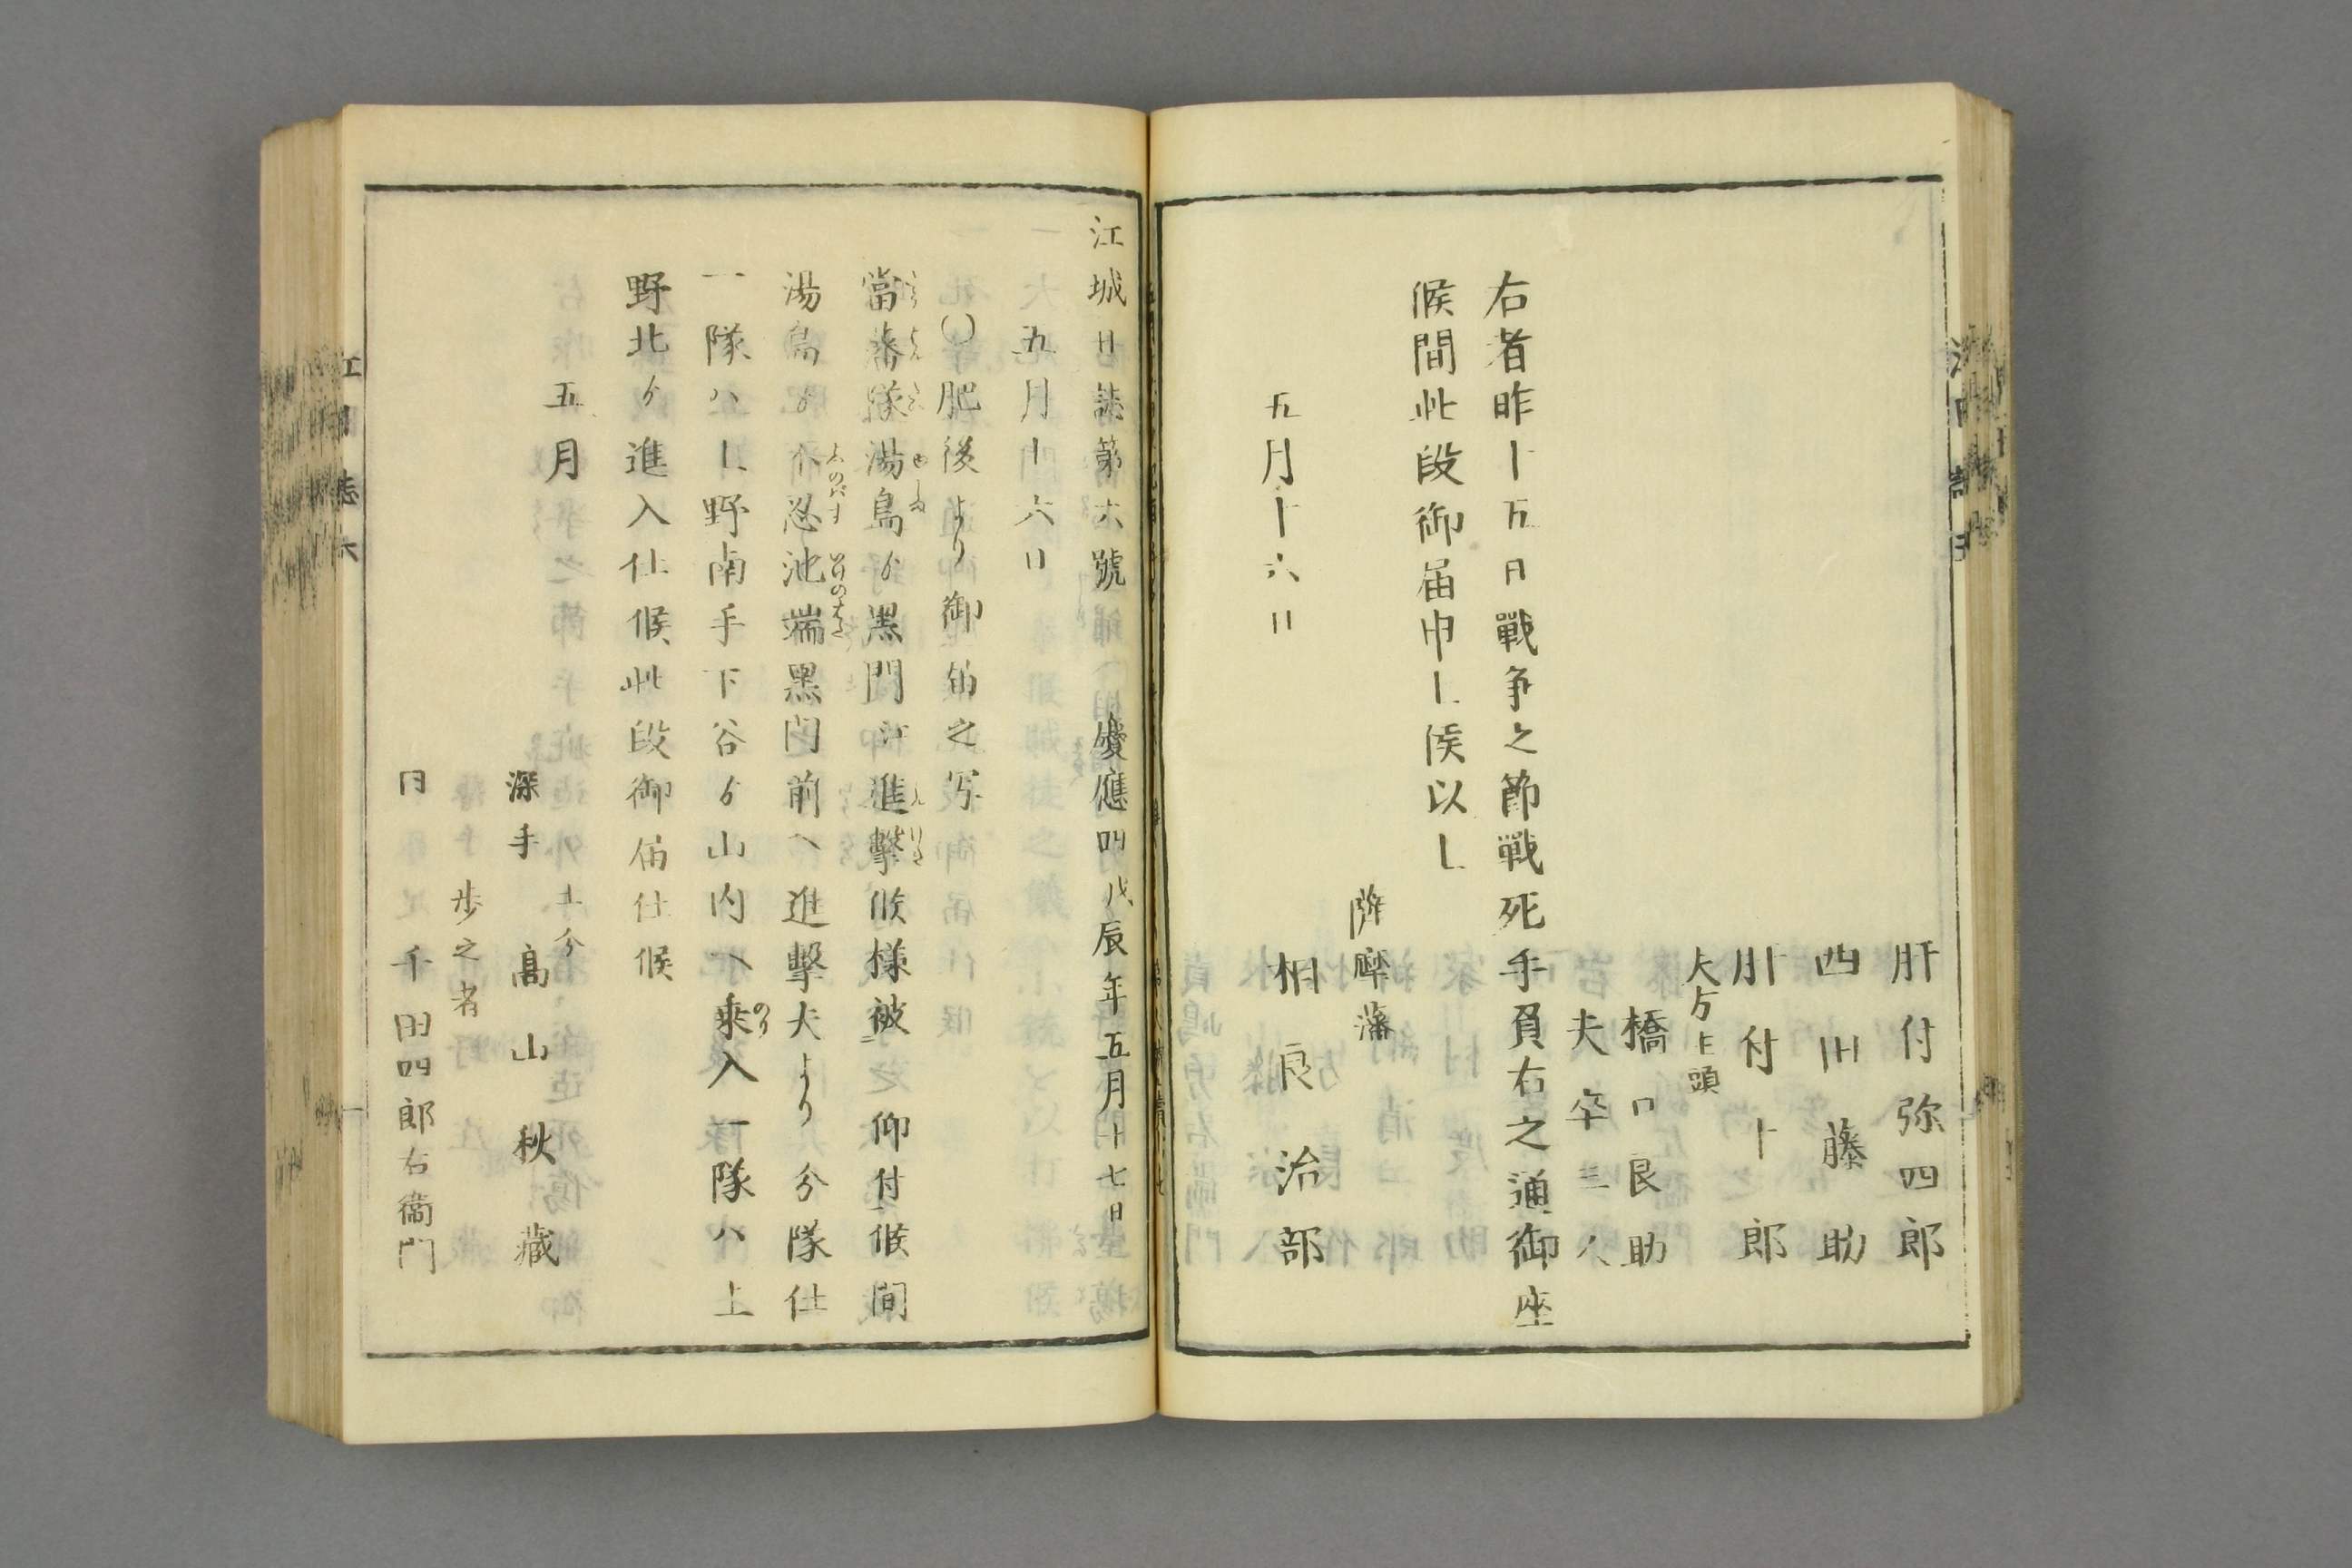 肝付弥四郎
四田藤助
肝付十郎
夫方上頭
橋口良助
夫卒三人
右者昨十五日戰争之節戦死手負右之通御座
候間此段御届申上候以上
薩摩藩
五月十六日 相良治部
江城日誌第六號 慶應四戊辰年五月十七日
五月十六日
〇肥後より御届之写
當藩隊湯島ゟ黒門江進擊候様被 仰付候間
湯島ゟ不忍池端黒門前へ進擊夫より分隊仕
一隊ハ上野南手下谷ゟ山内へ乗入一隊ハ上
野北ゟ進入仕候此段御届仕候
五月
士分
深手 髙山秋藏
歩之者
同 千田四郎右衞門
江日誌六